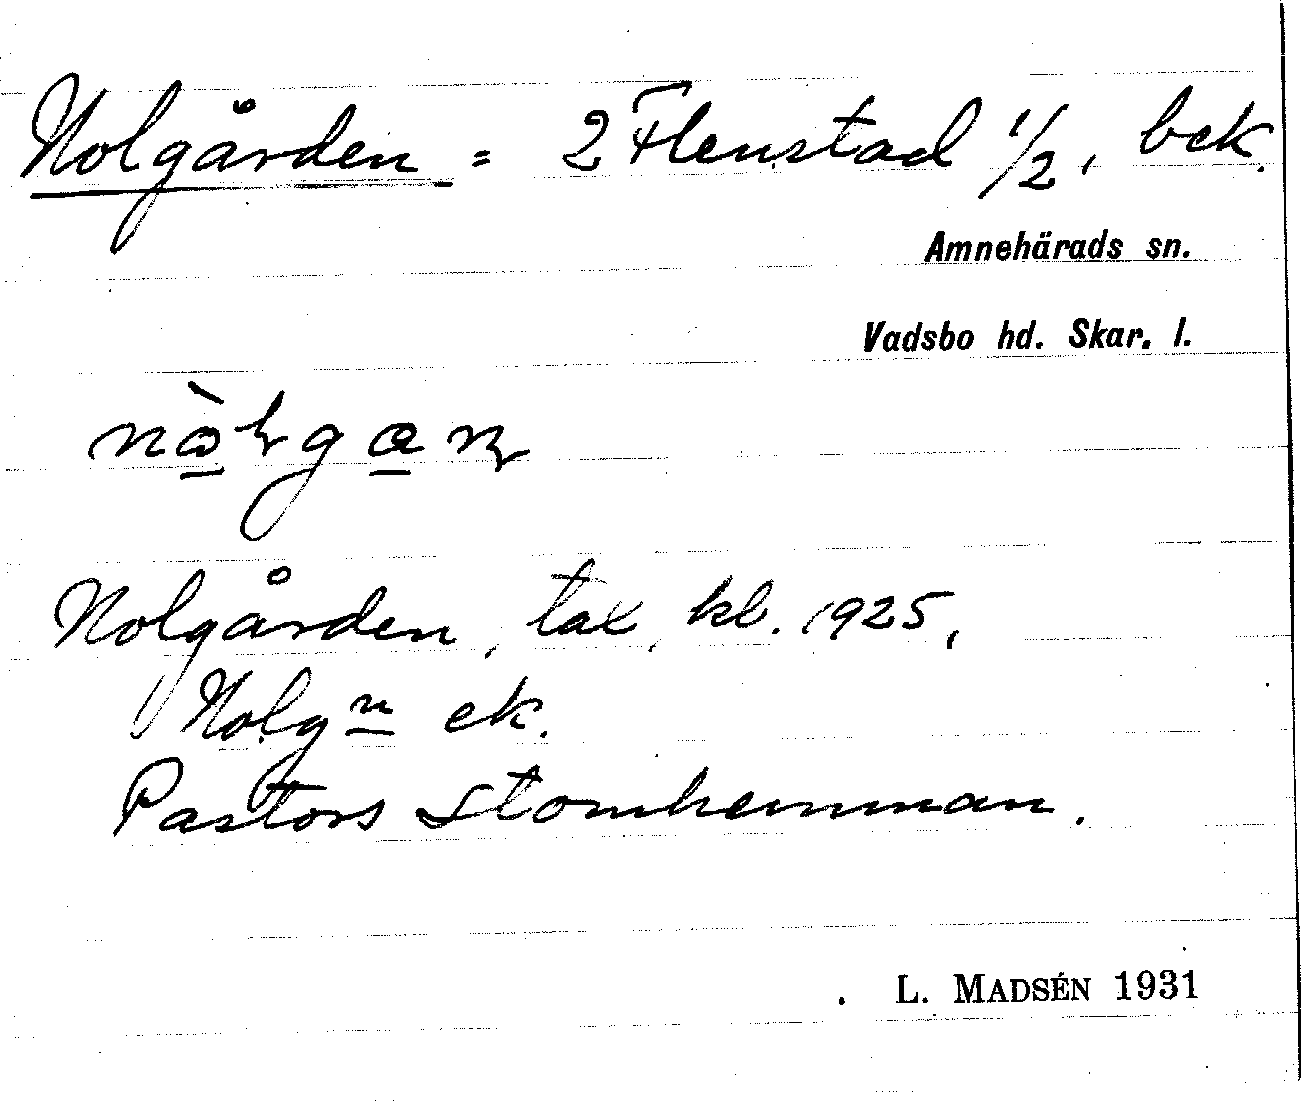 Nolgården = 2 Flenstad 1/2, bek.
Amnehärads sn.
Vadsbo hd. Skar. l.
Nolgården, tax. kl. 1925,
Nolgn ek.
Pastors stomhemman.
L. MADSÉN 1931